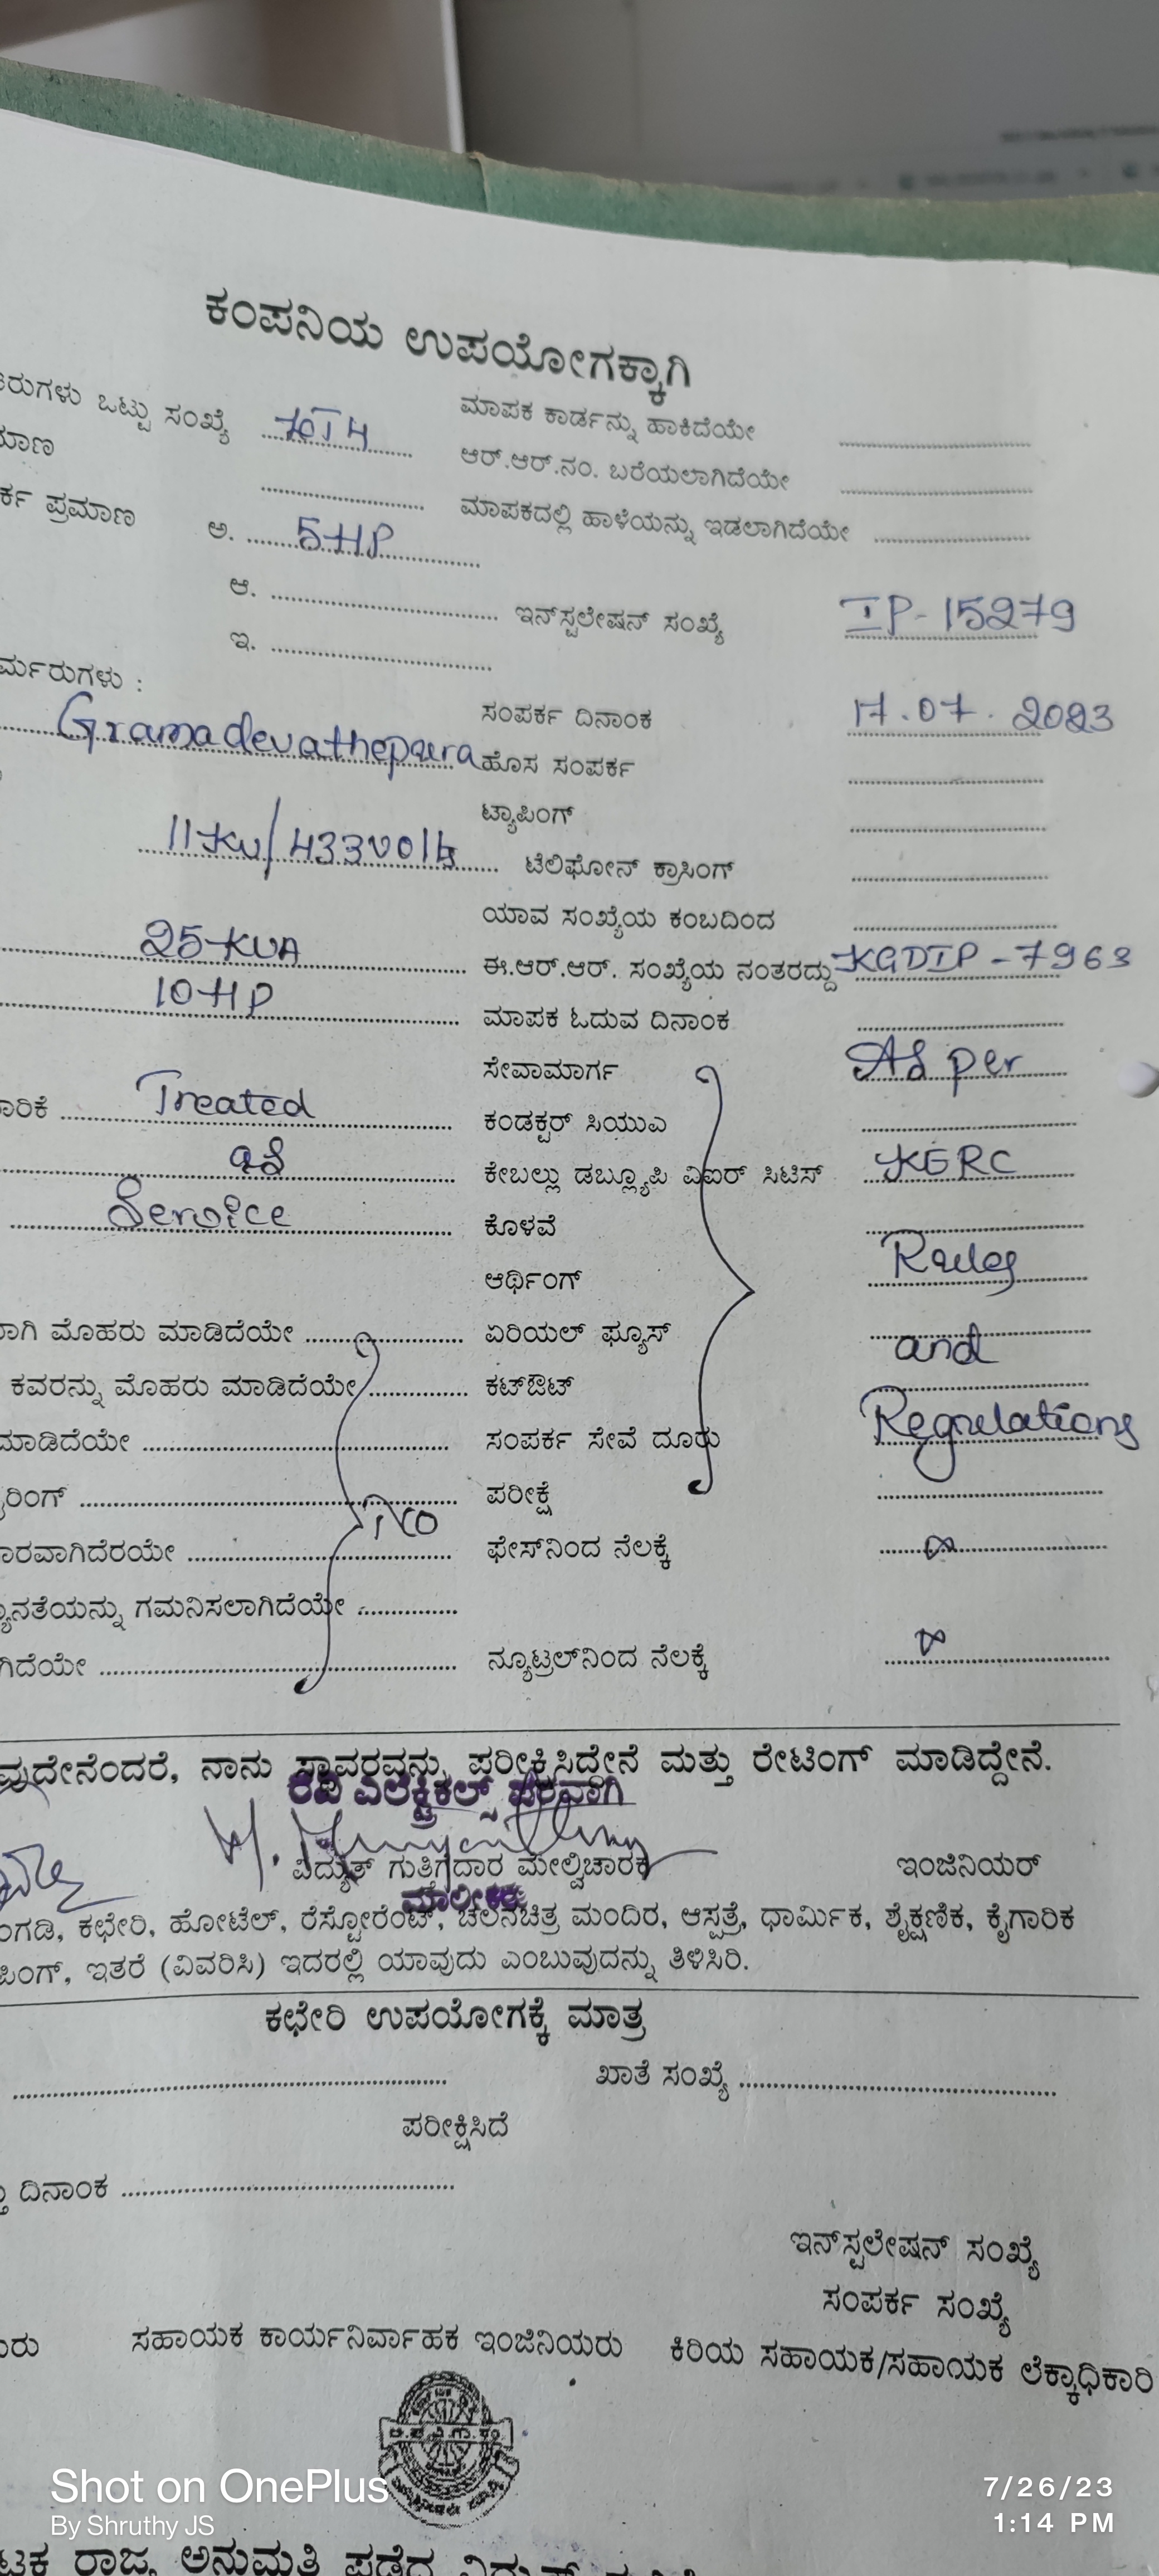 ಕಂಪನಿಯ ಉಪಯೋಗಕ್ಕಾಗಿ
ರುಗಳು ಒಟ್ಟು ಸಂಖ್ಯೆ ಮಾಪಕ ಕಾರ್ಡನ್ನು ಹಾಕಿದೆಯೇ
ಮಾಣ ಆರ್.ಆರ್.ನಂ. ಬರೆಯಲಾಗಿದೆಯೇ
ರ್ಕ ಪ್ರಮಾಣ ಅ. 5HP ಮಾಪಕದಲ್ಲಿ ಹಾಳೆಯನ್ನು ಇಡಲಾಗಿದೆಯೇ
ಆ. ಇನ್‌ಸ್ಟಲೇಷನ್ ಸಂಖ್ಯೆ IP-15279
ಇ.
ರ್ಮರುಗಳು : ಸಂಪರ್ಕ ದಿನಾಂಕ 17.07.2023
Gramadevathepura ಹೊಸ ಸಂಪರ್ಕ
ಟ್ಯಾಪಿಂಗ್
11KV/433volt ಟೆಲಿಫೋನ್ ಕ್ರಾಸಿಂಗ್
ಯಾವ ಸಂಖ್ಯೆಯ ಕಂಬದಿಂದ
25KVA ಈ.ಆರ್.ಆರ್. ಸಂಖ್ಯೆಯ ನಂತರದ್ದು KGDIP-7963
10HP ಮಾಪಕ ಓದುವ ದಿನಾಂಕ
ಸೇವಾಮಾರ್ಗ As per
ಾರಿಕೆ Treated ಕಂಡಕ್ಟರ್ ಸಿಯುಎ
as ಕೇಬಲ್ಲು ಡಬ್ಲ್ಯೂಪಿ ವಿಐರ್ ಸಿಟಿಸ್ KERC
Service ಕೊಳವೆ
ಆರ್ಥಿಂಗ್ Rules
ರಾಗಿ ಮೊಹರು ಮಾಡಿದೆಯೇ ಏರಿಯಲ್ ಫ್ಯೂಸ್ and
ಕವರನ್ನು ಮೊಹರು ಮಾಡಿದೆಯೇ ಕಟ್‌ಔಟ್
ಮಾಡಿದೆಯೇ ಸಂಪರ್ಕ ಸೇವೆ ದೂರು Regulations
ೈರಿಂಗ್ No ಪರೀಕ್ಷೆ
ಾರವಾಗಿದೆರಯೇ ಫೇಸ್‌ನಿಂದ ನೆಲಕ್ಕೆ ∞
್ಯೂನತೆಯನ್ನು ಗಮನಿಸಲಾಗಿದೆಯೇ
ಗಿದೆಯೇ ನ್ಯೂಟ್ರಲ್‌ನಿಂದ ನೆಲಕ್ಕೆ
ವುದೇನೆಂದರೆ, ನಾನು ಸ್ಥಾವರವನ್ನು ಪರೀಕ್ಷಿಸಿದ್ದೇನೆ ಮತ್ತು ರೇಟಿಂಗ್ ಮಾಡಿದ್ದೇನೆ.
ರವಿ ಎಲೆಕ್ಟ್ರಿಕಲ್ಸ್ ಪರವಾಗಿ
ವಿದ್ಯುತ್ ಗುತ್ತಿಗೆದಾರ ಮೇಲ್ವಿಚಾರಕ ಇಂಜಿನಿಯರ್
ಮಾಲೀಕರು
ಂಗಡಿ, ಕಛೇರಿ, ಹೋಟೆಲ್, ರೆಸ್ಟೋರೆಂಟ್, ಚಲನಚಿತ್ರ ಮಂದಿರ, ಆಸ್ಪತ್ರೆ, ಧಾರ್ಮಿಕ, ಶೈಕ್ಷಣಿಕ, ಕೈಗಾರಿಕ
ಪಿಂಗ್, ಇತರೆ (ವಿವರಿಸಿ) ಇದರಲ್ಲಿ ಯಾವುದು ಎಂಬುವುದನ್ನು ತಿಳಿಸಿರಿ.
ಕಛೇರಿ ಉಪಯೋಗಕ್ಕೆ ಮಾತ್ರ
ಖಾತೆ ಸಂಖ್ಯೆ
ಪರೀಕ್ಷಿಸಿದೆ
ದಿನಾಂಕ
ಇನ್‌ಸ್ಟಲೇಷನ್ ಸಂಖ್ಯೆ
ಸಂಪರ್ಕ ಸಂಖ್ಯೆ
ರು ಸಹಾಯಕ ಕಾರ್ಯನಿರ್ವಾಹಕ ಇಂಜಿನಿಯರು ಕಿರಿಯ ಸಹಾಯಕ/ಸಹಾಯಕ ಲೆಕ್ಕಾಧಿಕಾರಿ
Shot on OnePlus 7/26/23
By Shruthy JS 1:14 PM
ಟಕ ರಾಜ್ಯ ಅನುಮತಿ ಪಡೆದ